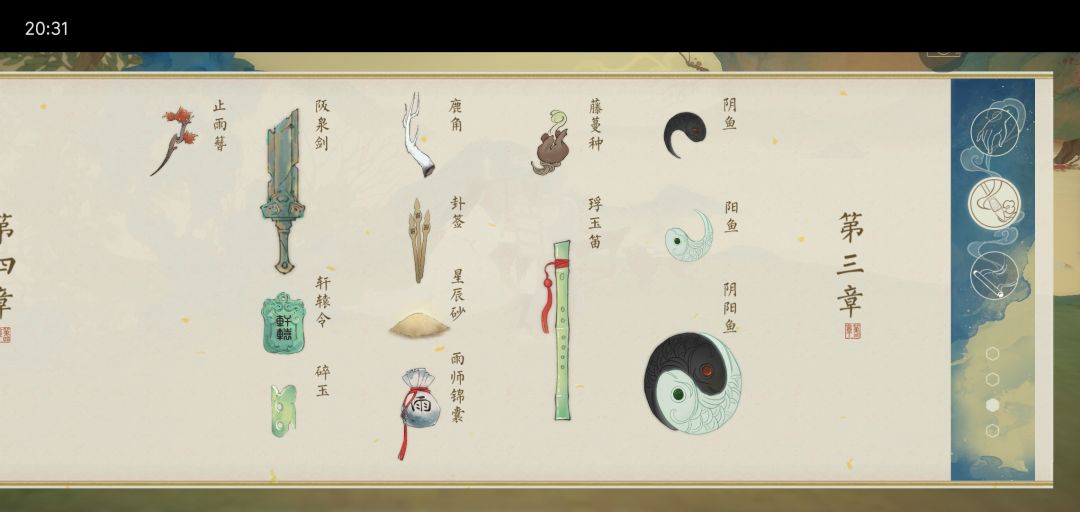 20:31
第三章
阴鱼
阳鱼
阴阳鱼
藤蔓种
浮玉笛
鹿角
卦签
星辰砂
雨师锦囊
雨
阪泉剑
轩辕令
軒轅
碎玉
止雨簪
第四章